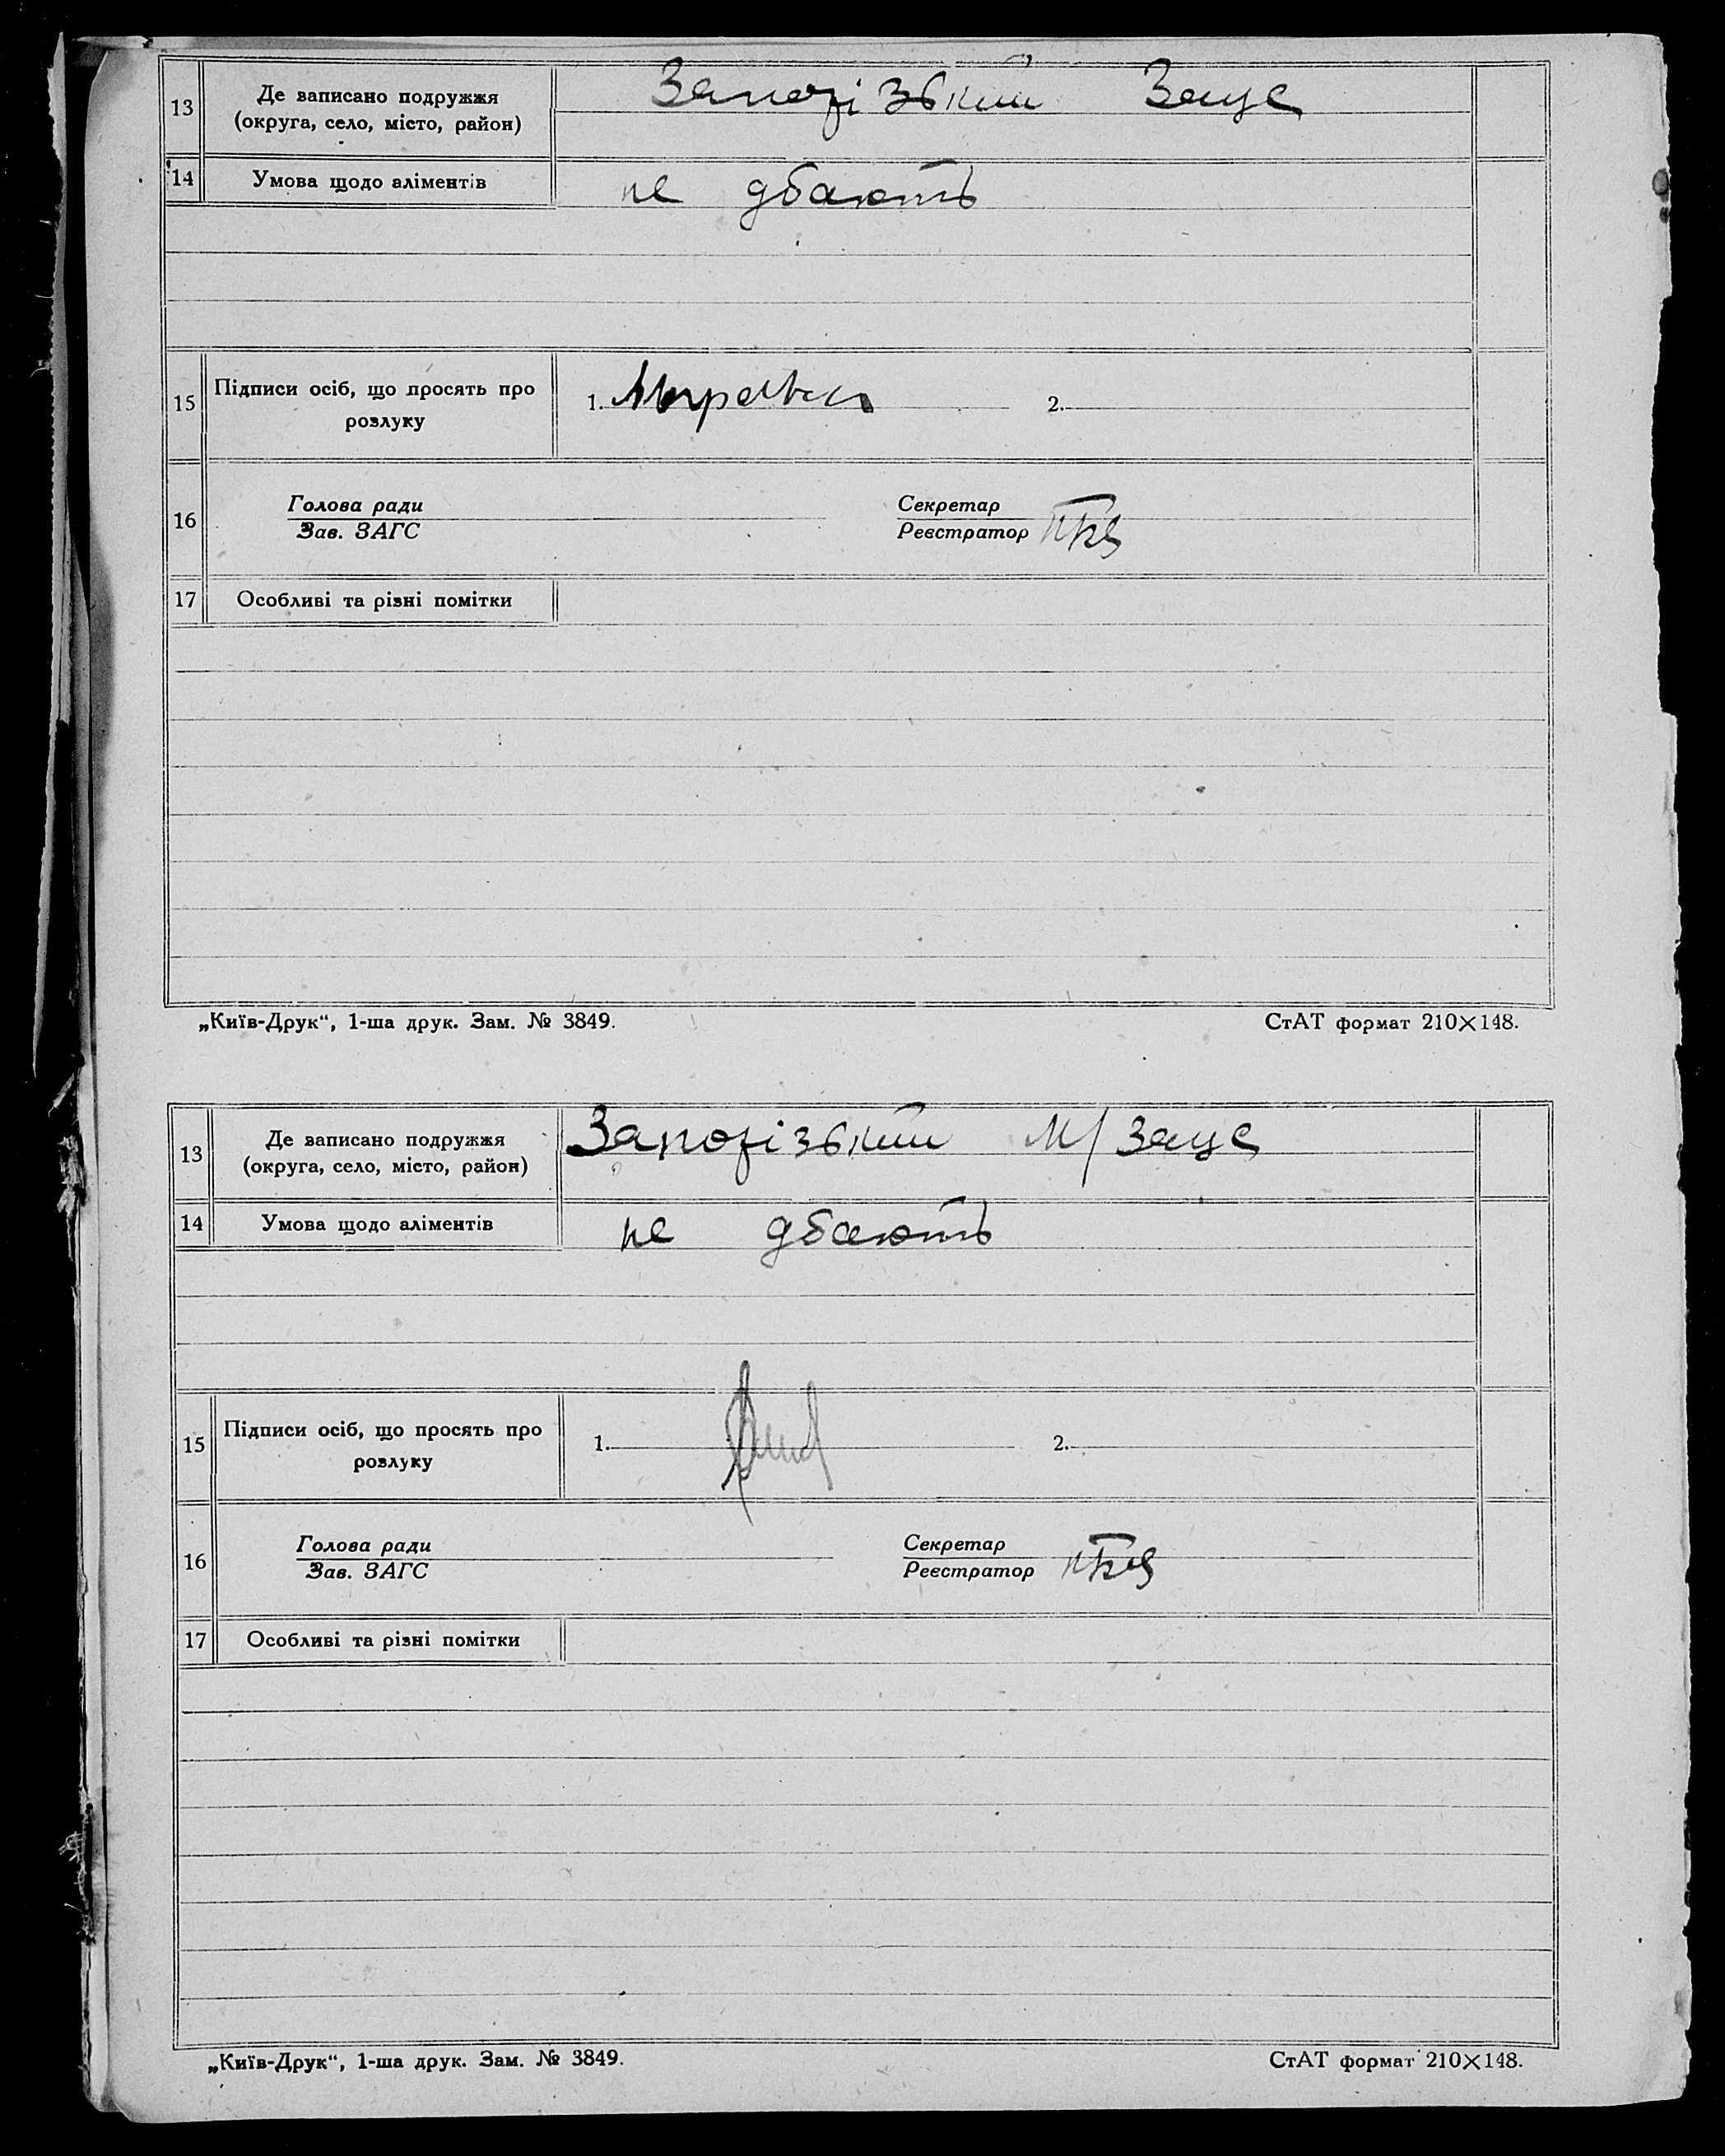 13
Де записано подружжя
(округа, село, місто, район)
Запорізький Загс
14
Умова щодо аліментів
не дбають
15
Підписи осіб, що просять про
розлуку
1.
2.
16
Голова ради
Зав. ЗАГС
Секретар
Реєстратор
17
Особливі та різні помітки
„Київ-Друк“, 1-ша друк. Зам. № 3849.
СтАТ формат 210×148.
13
Де записано подружжя
(округа, село, місто, район)
Запорізький М/Загс
14
Умова щодо аліментів
не дбають
15
Підписи осіб, що просять про
розлуку
1.
2.
16
Голова ради
Зав. ЗАГС
Секретар
Реєстратор
17
Особливі та різні помітки
„Київ-Друк“, 1-ша друк. Зам. № 3849.
СтАТ формат 210×148.